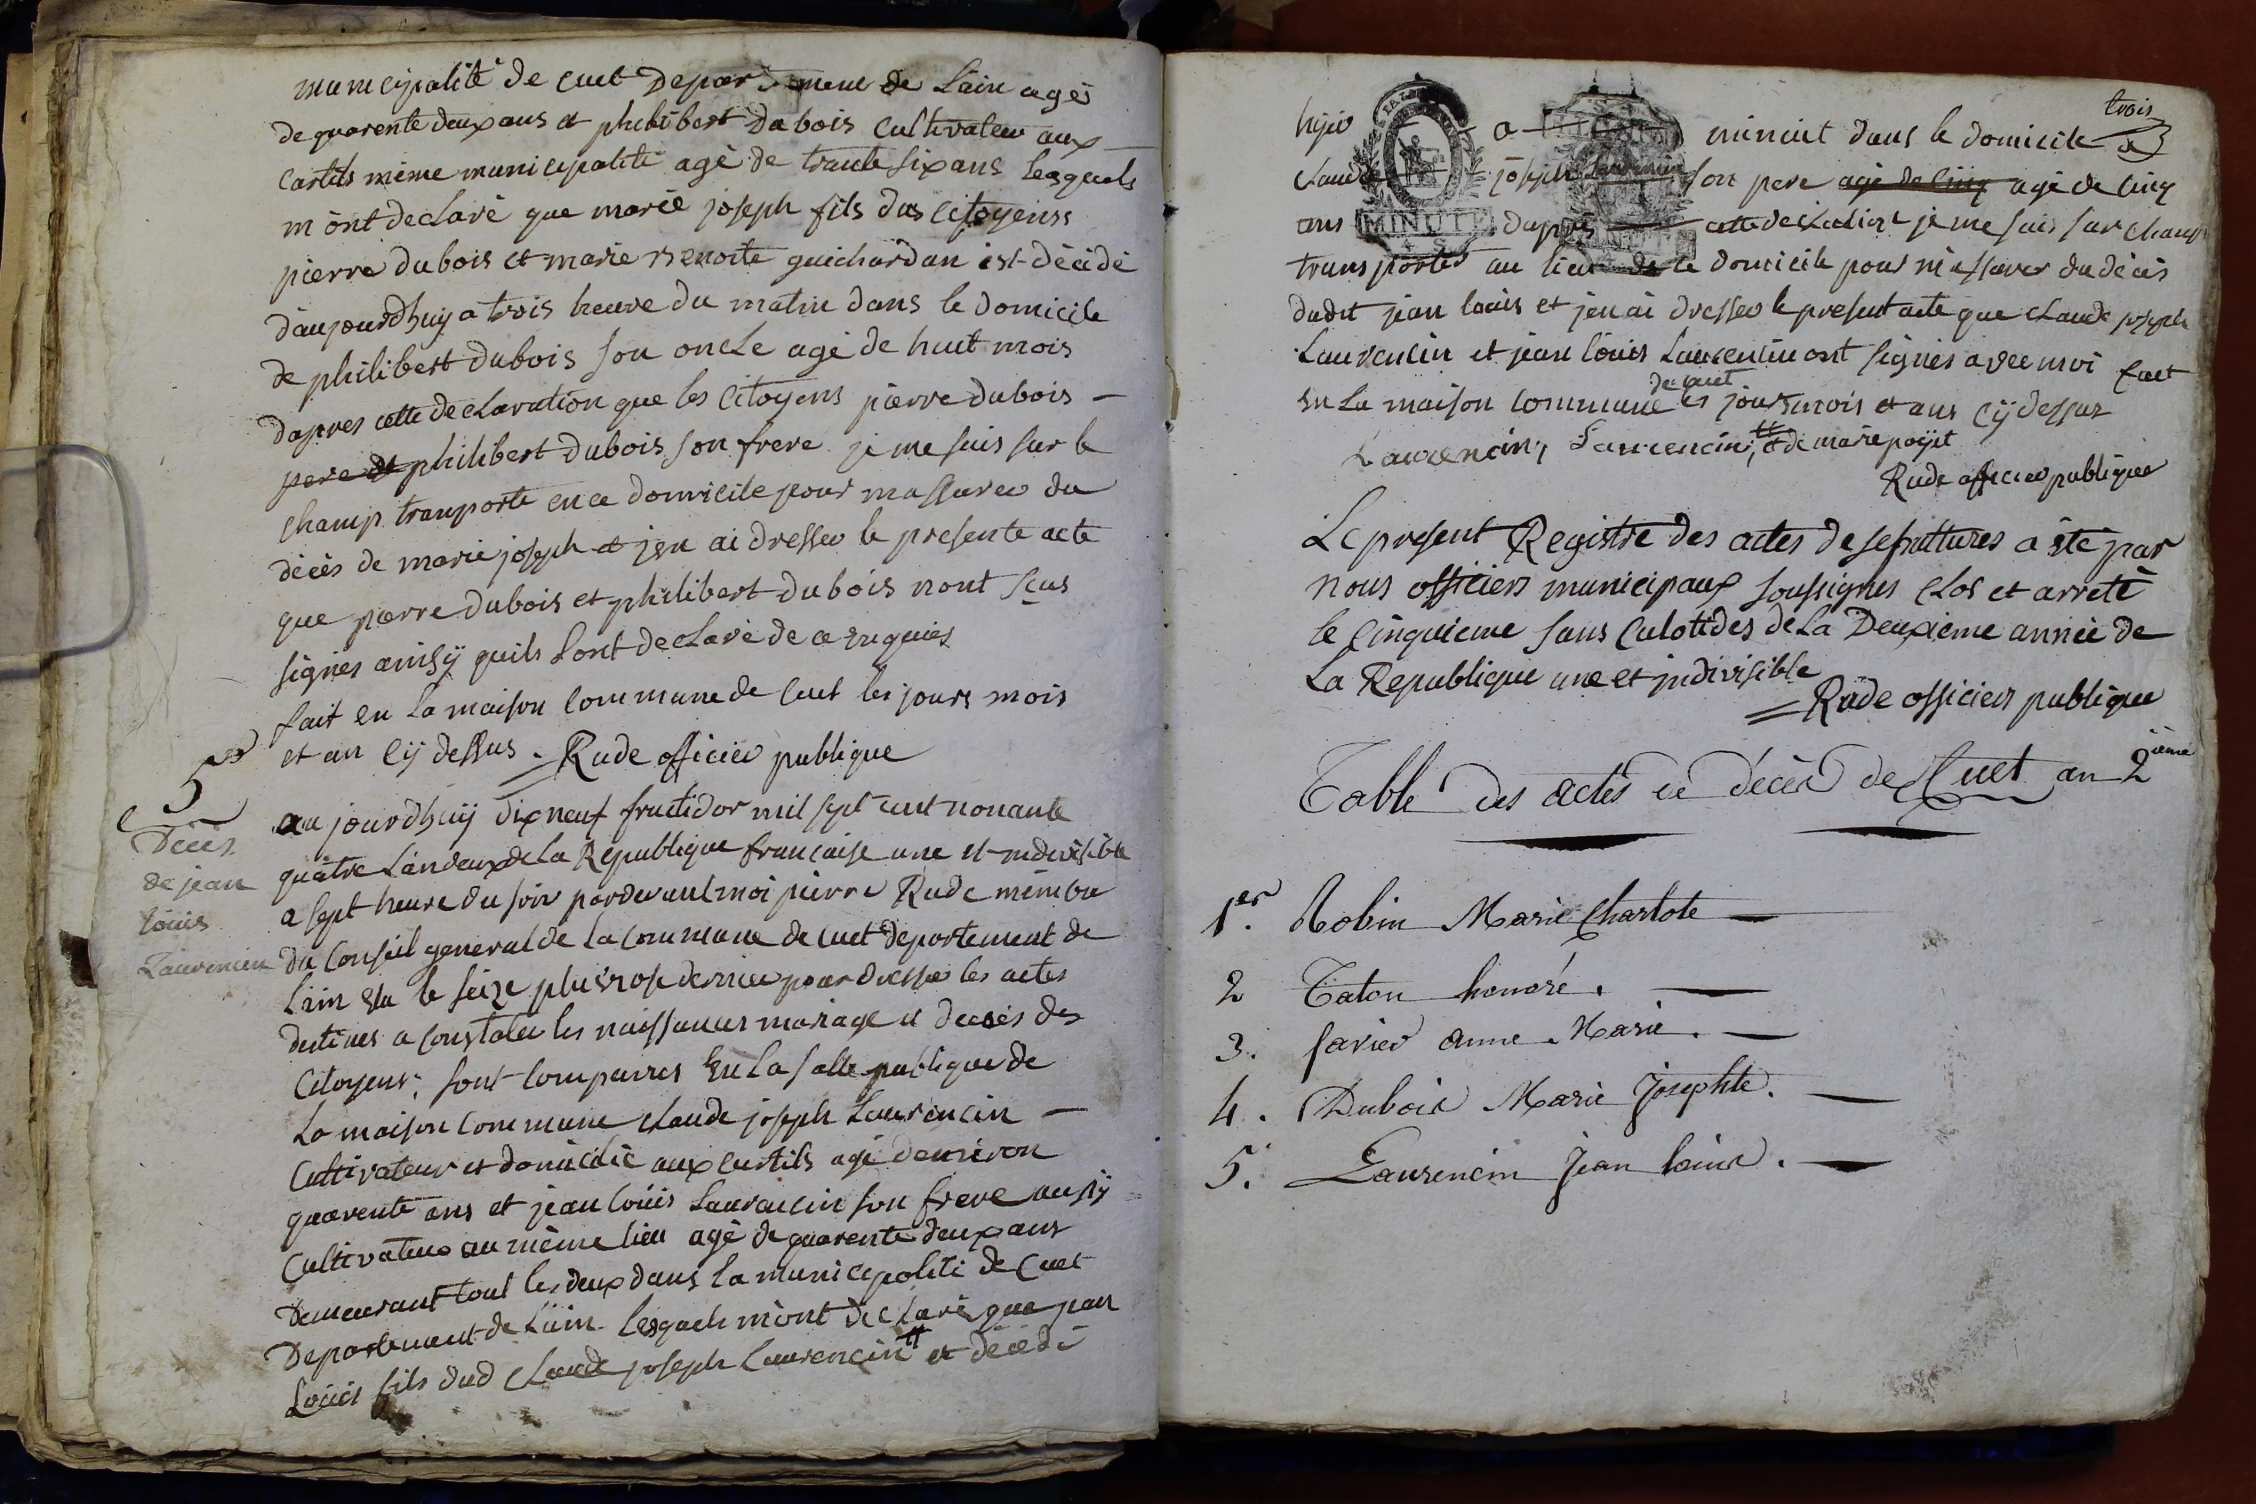 municipalité de cuet Departement de Lain agés
de quarente deux ans et philibert Dubois cultivateur aux
Cortils même municipalité agé de trante six ans lesquels
mont declaré que marie joseph fils des Citoyenss
pierre dubois et marie Benoite guichardan est décédé
daujourdhuy a trois heure du matin dans le domicile
de philibert dubois son oncle agé de huit mois
dapres cette declaration que les Citoyens pierre dubois
pere et philibert dubois son frere je me suis sur le
champ tranporté en ce domicile pour massurer du
décès de marie joseph et jen ai dresser le presente acte
que pierre dubois et philibert dubois nont sçus
signés ainsÿ quils lont declaré de ce enquies
fait en La maison Commune de Cuet les jours mois
et an Cÿ dessus . Rude officier publique
5
Décès
de jean
Louis
Laurencin
au jourdhuÿ dix neuf fructidor mil sept cent nonante
quatre Lan deux de La Republique francaise une et indivisible
a sept heure du soir pardevant moi pierre Rude membre
du Conseil general de La Commune de Cuet departement de
Lain elu le seize pluviose dernier pour dresser les actes
destinés a Constater les naissances mariage et decés des
Citoyens, sont Comparres En La salle publique de
La maison Commune claude joseph Laurencin
Cultivateur et domicilié aux curtils agé denviron
quarente ans et jean Louis Laurencin son frere aussÿ
Cultivateur au même lieu agé de quarente deux ans
Demeurant tout les deux dans la municipalité de Cuet
Departement de Lain. Lesquels mont declaré que jean
Louis fils dud Claude joseph Laurencin et décédé
hyer a minuit dans le domicile trois
Claude joseph Laurencin son pere agé de Cinq agé de Cinq
ans dapres cette declaration je me suis sur champ
transporter au lieu de ce domicile pour massurer du décès
dudit jean louis et jen ai dresser le present acte que Claude joseph
Laurencin et jean louis Laurencin ont signés avec moi fait
de cuet
En La maison Commune les jours mois et ans Cÿ dessus
Laurencin, Laurencin,
Rude officier publique
MINUTE
Le present Registre des actes de sepultures a été par
nous officiers municipaux soussignes Clos et arreté
le Cinquieme sans Culotides de La Deuxieme année de
La Republique une et indivisible
Rude officier publique
Table des actes de décès de Cuet an 2ième
1er. Robin Marie Charlote
2 Taton honoré.
3. favier anne Marie.
4. Dubois Marie Josephte.
5. Laurencin Jean Louis.